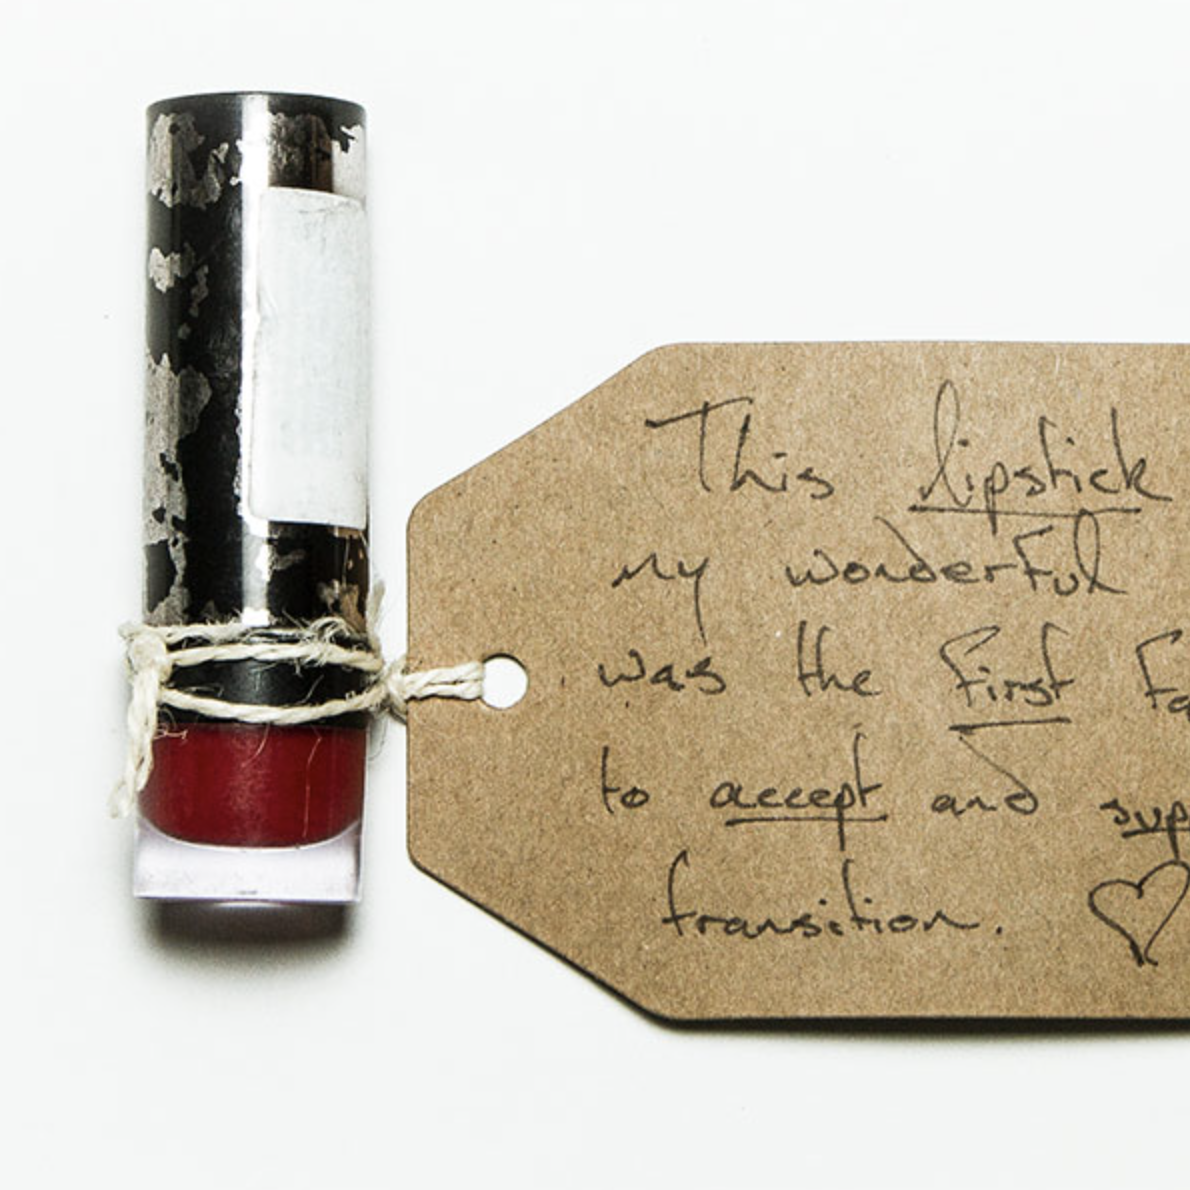 This lipstick
my wonderful
was the first
to accept and
transition.